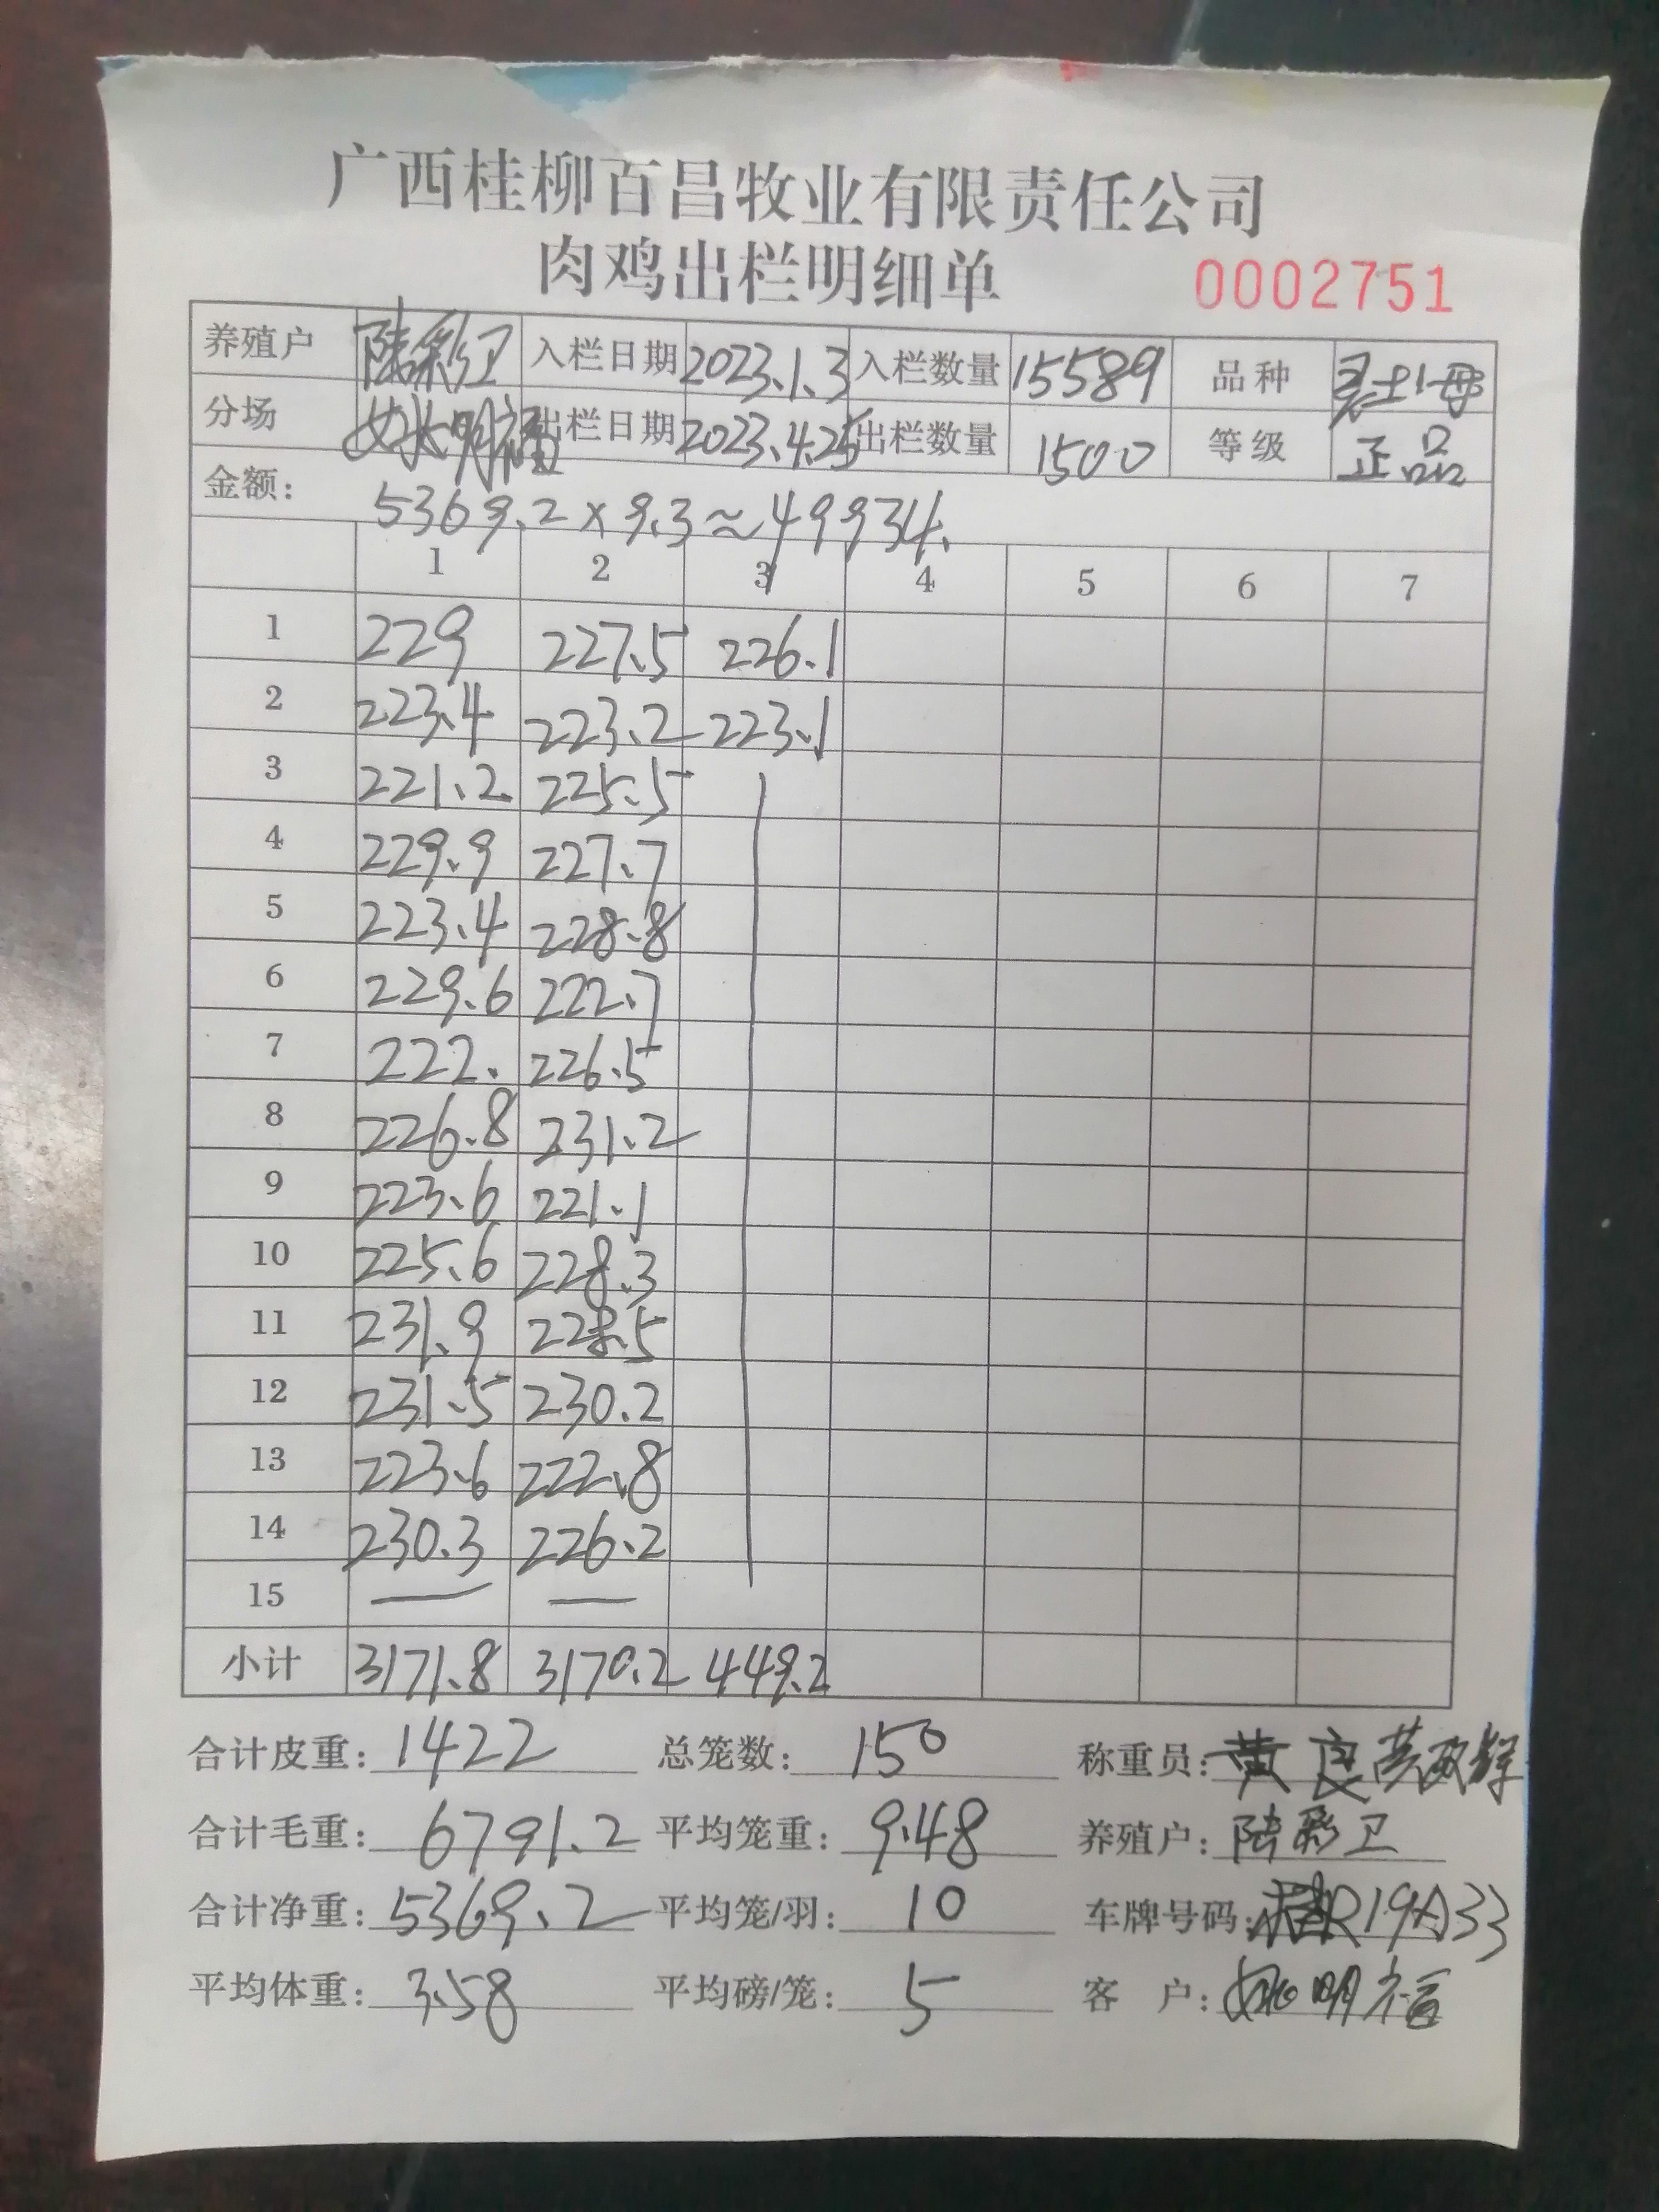 广西桂柳百昌牧业有限责任公司
肉鸡出栏明细单 0002751
养殖户 陆彩卫 入栏日期 2023.1.3 入栏数量 15589 品种
分场 出栏日期 2023.4.25 出栏数量 1500 等级 正品
金额: 5369.2×9.3≈49934.
1 2 3 4 5 6 7
1 229 227.5 226.1
2 223.4 223.2 223.1
3 221.2 225.5
4 229.9 227.7
5 223.4 228.8
6 229.6 222.7
7 222. 226.5
8 226.8 231.2
9 223.6 221.1
10 225.6 228.3
11 231.9 228.5
12 231.5 230.2
13 223.6 222.8
14 230.3 226.2
15 — —
小计 3171.8 3170.2 449.2
合计皮重: 1422 总笼数: 150 称重员:
合计毛重: 6791.2 平均笼重: 9.48 养殖户: 陆彩卫
合计净重: 5369.2 平均笼/羽: 10 车牌号码: 桂R19A33
平均体重: 3.58 平均磅/笼: 5 客户: 明福